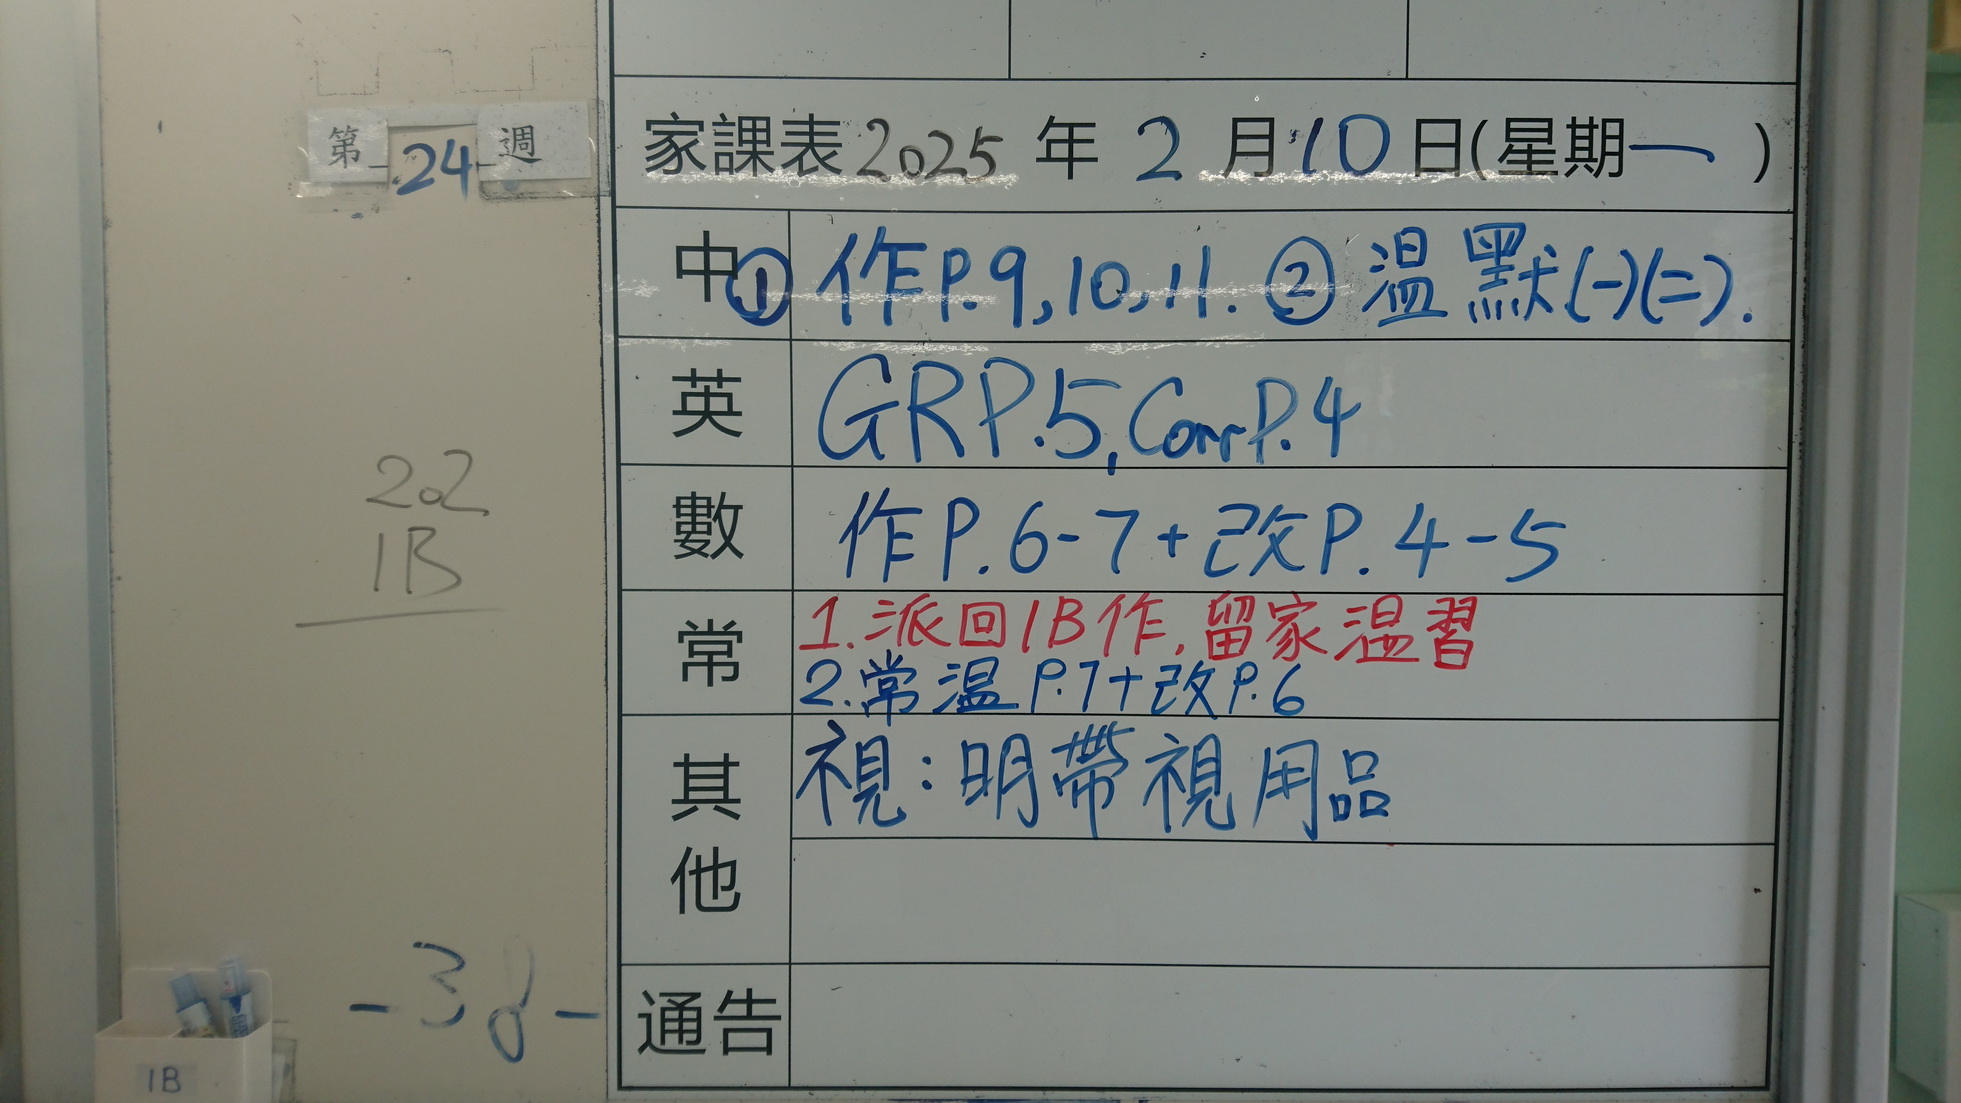 第24週
家課表2025年2月10日(星期一)
中 ①作P.9,10,11. ②温默(一)(二).
英 GRP.5, Corr P.4
數 作P.6-7+改P.4-5
常 1.派回1B作,留家温習
2.常温P.7+改P.6
其他 視:明帶視用品
通告
202
1B
-38-
1B